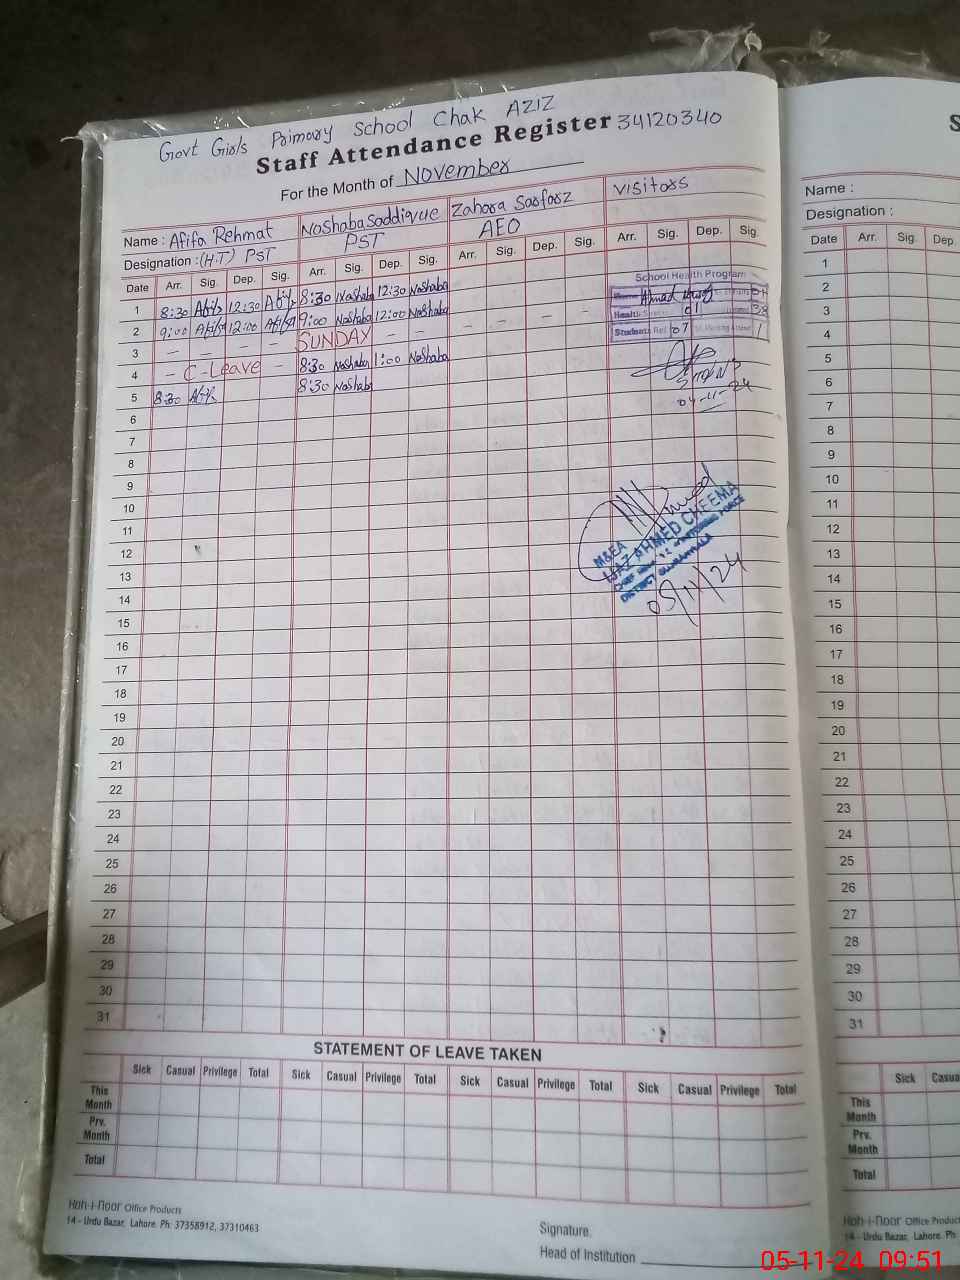 Govt Girls Primary School Chak AZIZ
Staff Attendance Register 34120340
For the Month of November
Name : Afifa Rehmat Noshaba Saddique Zahara Sarfarz Visitors
Designation : (H.T) PST PST AEO
Date Arr. Sig. Dep. Sig. Arr. Sig. Dep. Sig. Arr. Sig. Dep. Sig. Arr. Sig. Dep. Sig.
1 8:30 Afifa 12:30 Afifa 8:30 Noshaba 12:30 Noshaba
2 9:00 Afifa 12:00 Afifa 9:00 Noshaba 12:00 Noshaba
3 — — SUNDAY — — — — — —
4 — C-Leave — 8:30 Noshaba 1:00 Noshaba
5 8:30 Afifa 8:30 Noshaba
6
7
8
9
10
11
12
13
14
15
16
17
18
19
20
21
22
23
24
25
26
27
28
29
30
31
School Health Program
Ahmad
Health 01 38
Students Ref. 07 1
04-11-24
Ahmed
M&EA
IJAZ AHMED CHEEMA
DISTRICT
05/11/24
STATEMENT OF LEAVE TAKEN
Sick Casual Privilege Total Sick Casual Privilege Total Sick Casual Privilege Total Sick Casual Privilege Total
This Month
Prv. Month
Total
Koh-i-Noor Office Products
14 - Urdu Bazar, Lahore. Ph: 37358912, 37310463
Signature,
Head of Institution
S
Name :
Designation :
Date Arr. Sig. Dep.
1
2
3
4
5
6
7
8
9
10
11
12
13
14
15
16
17
18
19
20
21
22
23
24
25
26
27
28
29
30
31
Sick Casua
This Month
Prv. Month
Total
Koh-i-Noor Office Product
14 - Urdu Bazar, Lahore. Ph
05-11-24 09:51